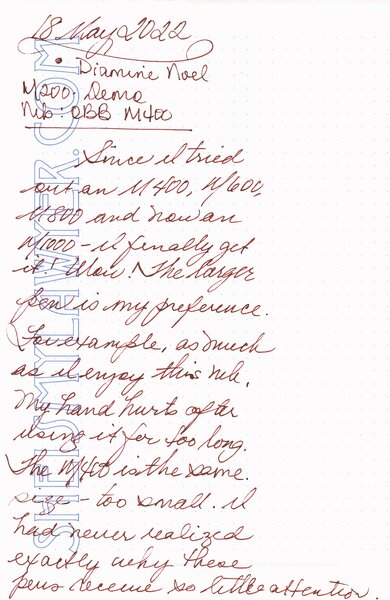 18 May 2022
• Diamine Noel
M200 - Demo
Nib: OBB M400
Since I tried
out an M400, M600,
M800 and now an
M1000 - I finally get
it! Wow! The larger
pen is my preference.
For example, as much
as I enjoy this nib,
my hand hurts after
using it for too long.
The M400 is the same
size - too small. I
had never realized
exactly why these
pens receive so little attention.
SHESMYLAWYER.COM